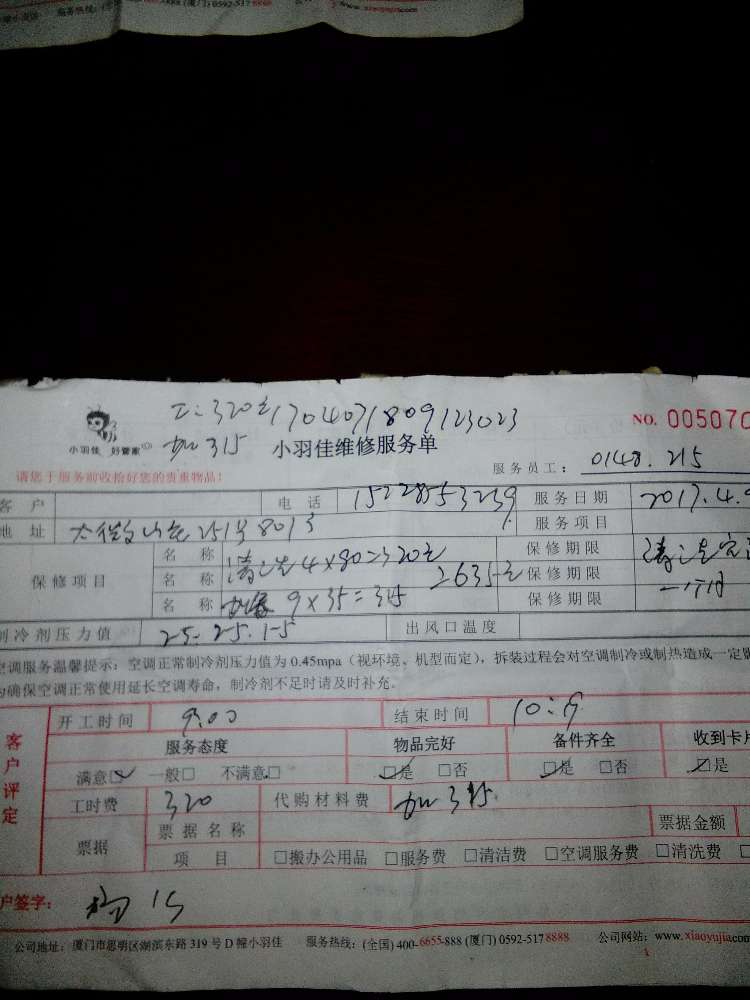 (厦门) 0592-5178888 www.xiaoyujia.com
工:320元1704071809123023
加315
小羽佳 好管家
小羽佳维修服务单
NO. 005070
请您于服务前收拾好您的贵重物品!
服务员工: 0148. 215
客 户 电 话 15228553239 服务日期 2017.4.9
地 址 251号801 服务项目
保修项目
名 称 清洗4×80=320元 保修期限
名 称 =635元 保修期限 一个月
名 称 9×35=315 保修期限
制冷剂压力值 25-25.1-5 出风口温度
空调服务温馨提示:空调正常制冷剂压力值为0.45mpa(视环境、机型而定),拆装过程会对空调制冷或制热造成一定
为确保空调正常使用延长空调寿命,制冷剂不足时请及时补充.
客户评定
开工时间 9:00 结束时间
服务态度 物品完好 备件齐全 收到卡片
满意□ 一般□ 不满意□ □是 □否 □是 □否 □是
工时费 320 代购材料费 加315
票据 票据名称 票据金额
项 目 □搬办公用品 □服务费 □清洁费 □空调服务费 □清洗费
户签字:
公司地址:厦门市思明区湖滨东路319号D幢小羽佳 服务热线:(全国) 400-6655-888 (厦门) 0592-5178888 公司网站:www.xiaoyujia.com